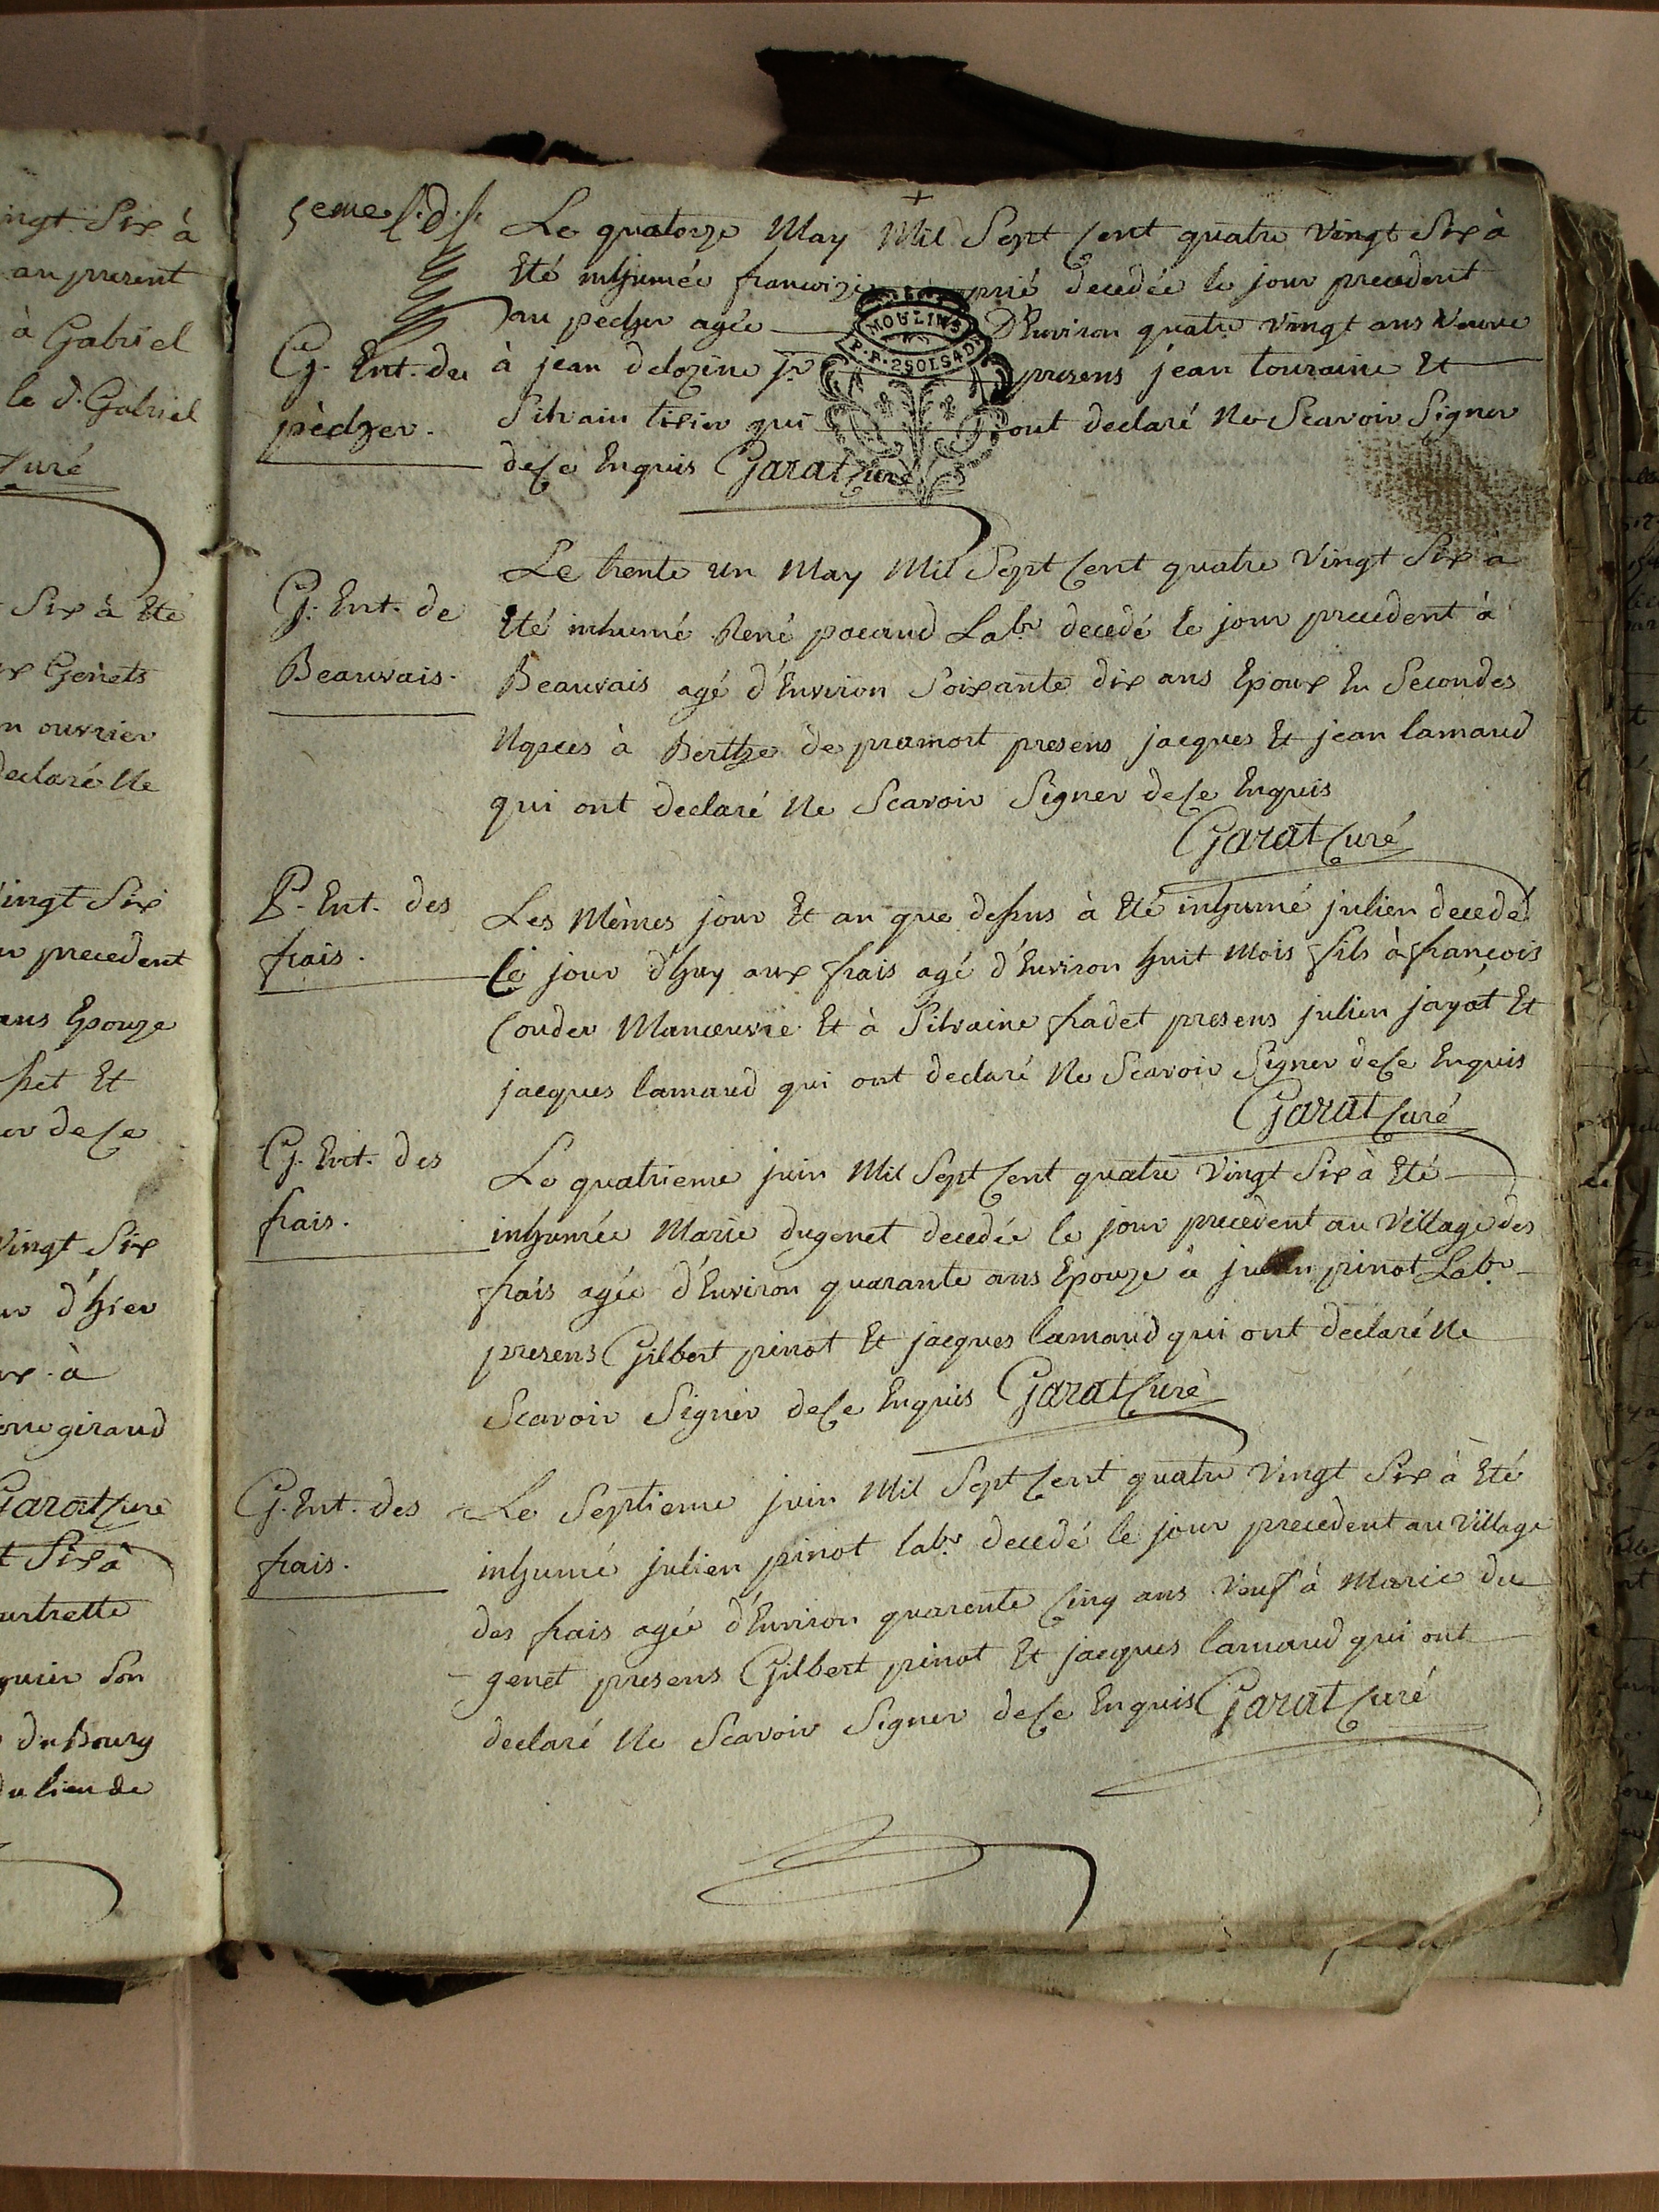 ingt Six à
au present
à Gabriel
le d. Gabriel
Curé
Six à Eté
Genets
n ouvrier
declaré Ne
vingt Six
precedent
ans Epouze
et Et
de Ce
vingt Six
d'hier
à
giraud
Garat Curé
t Six à
Son
du Bourg
du lieu de
5eme
Le quatorze May Mil Sept Cent quatre Vingt Six à
Eté inhumée françoize prié decedée le jour precedent
au pecher agée D'Environ quatre Vingt ans Veuve
à jean delozine jr presens jean touraine Et
Silvain tixier qui ont declaré Ne Scavoir Signer
de Ce Enquis Garat Curé
MOULINS
G. Ent. du
pècher.
Le trente un May Mil Sept Cent quatre Vingt Six à
Eté inhumé René pacaud Labr decedé le jour precedent à
Beauvais agé d'Environ Soixante dix ans Epoux En Secondes
Nopces à Berthe de pramort presens jacques Et jean lamaud
qui ont declaré Ne Scavoir Signer de Ce Enquis
Garat Curé
G. Ent. de
Beauvais.
Les Mêmes jour Et an que dessus à Eté inhumé julien decedé
Ce jour d'huy aux frais agé d'Environ huit Mois fils à françois
Couder Manœuvre Et à Silvaine fradet presens julien jayat Et
jacques lamaud qui ont declaré Ne Scavoir Signer de Ce Enquis
Garat Curé
P. Ent. des
frais.
Le quatrieme juin Mil Sept Cent quatre Vingt Six à Eté
inhumée Marie dugenet decedée le jour precedent au Village des
frais agée d'Environ quarante ans Epouze à julien pinot Labr
presens Gilbert pinot Et jacques lamaud qui ont declaré Ne
Scavoir Signer de Ce Enquis Garat Curé
G. Ent. des
frais.
Le Septieme juin Mil Sept Cent quatre Vingt Six à Eté
inhumé julien pinot labr decedé le jour precedent au Village
des frais agée d'Environ quarente Cinq ans Veuf à Marie du
genet presens Gilbert pinot Et jacques lamaud qui ont
declaré Ne Scavoir Signer de Ce Enquis Garat Curé
G. Ent. des
frais.